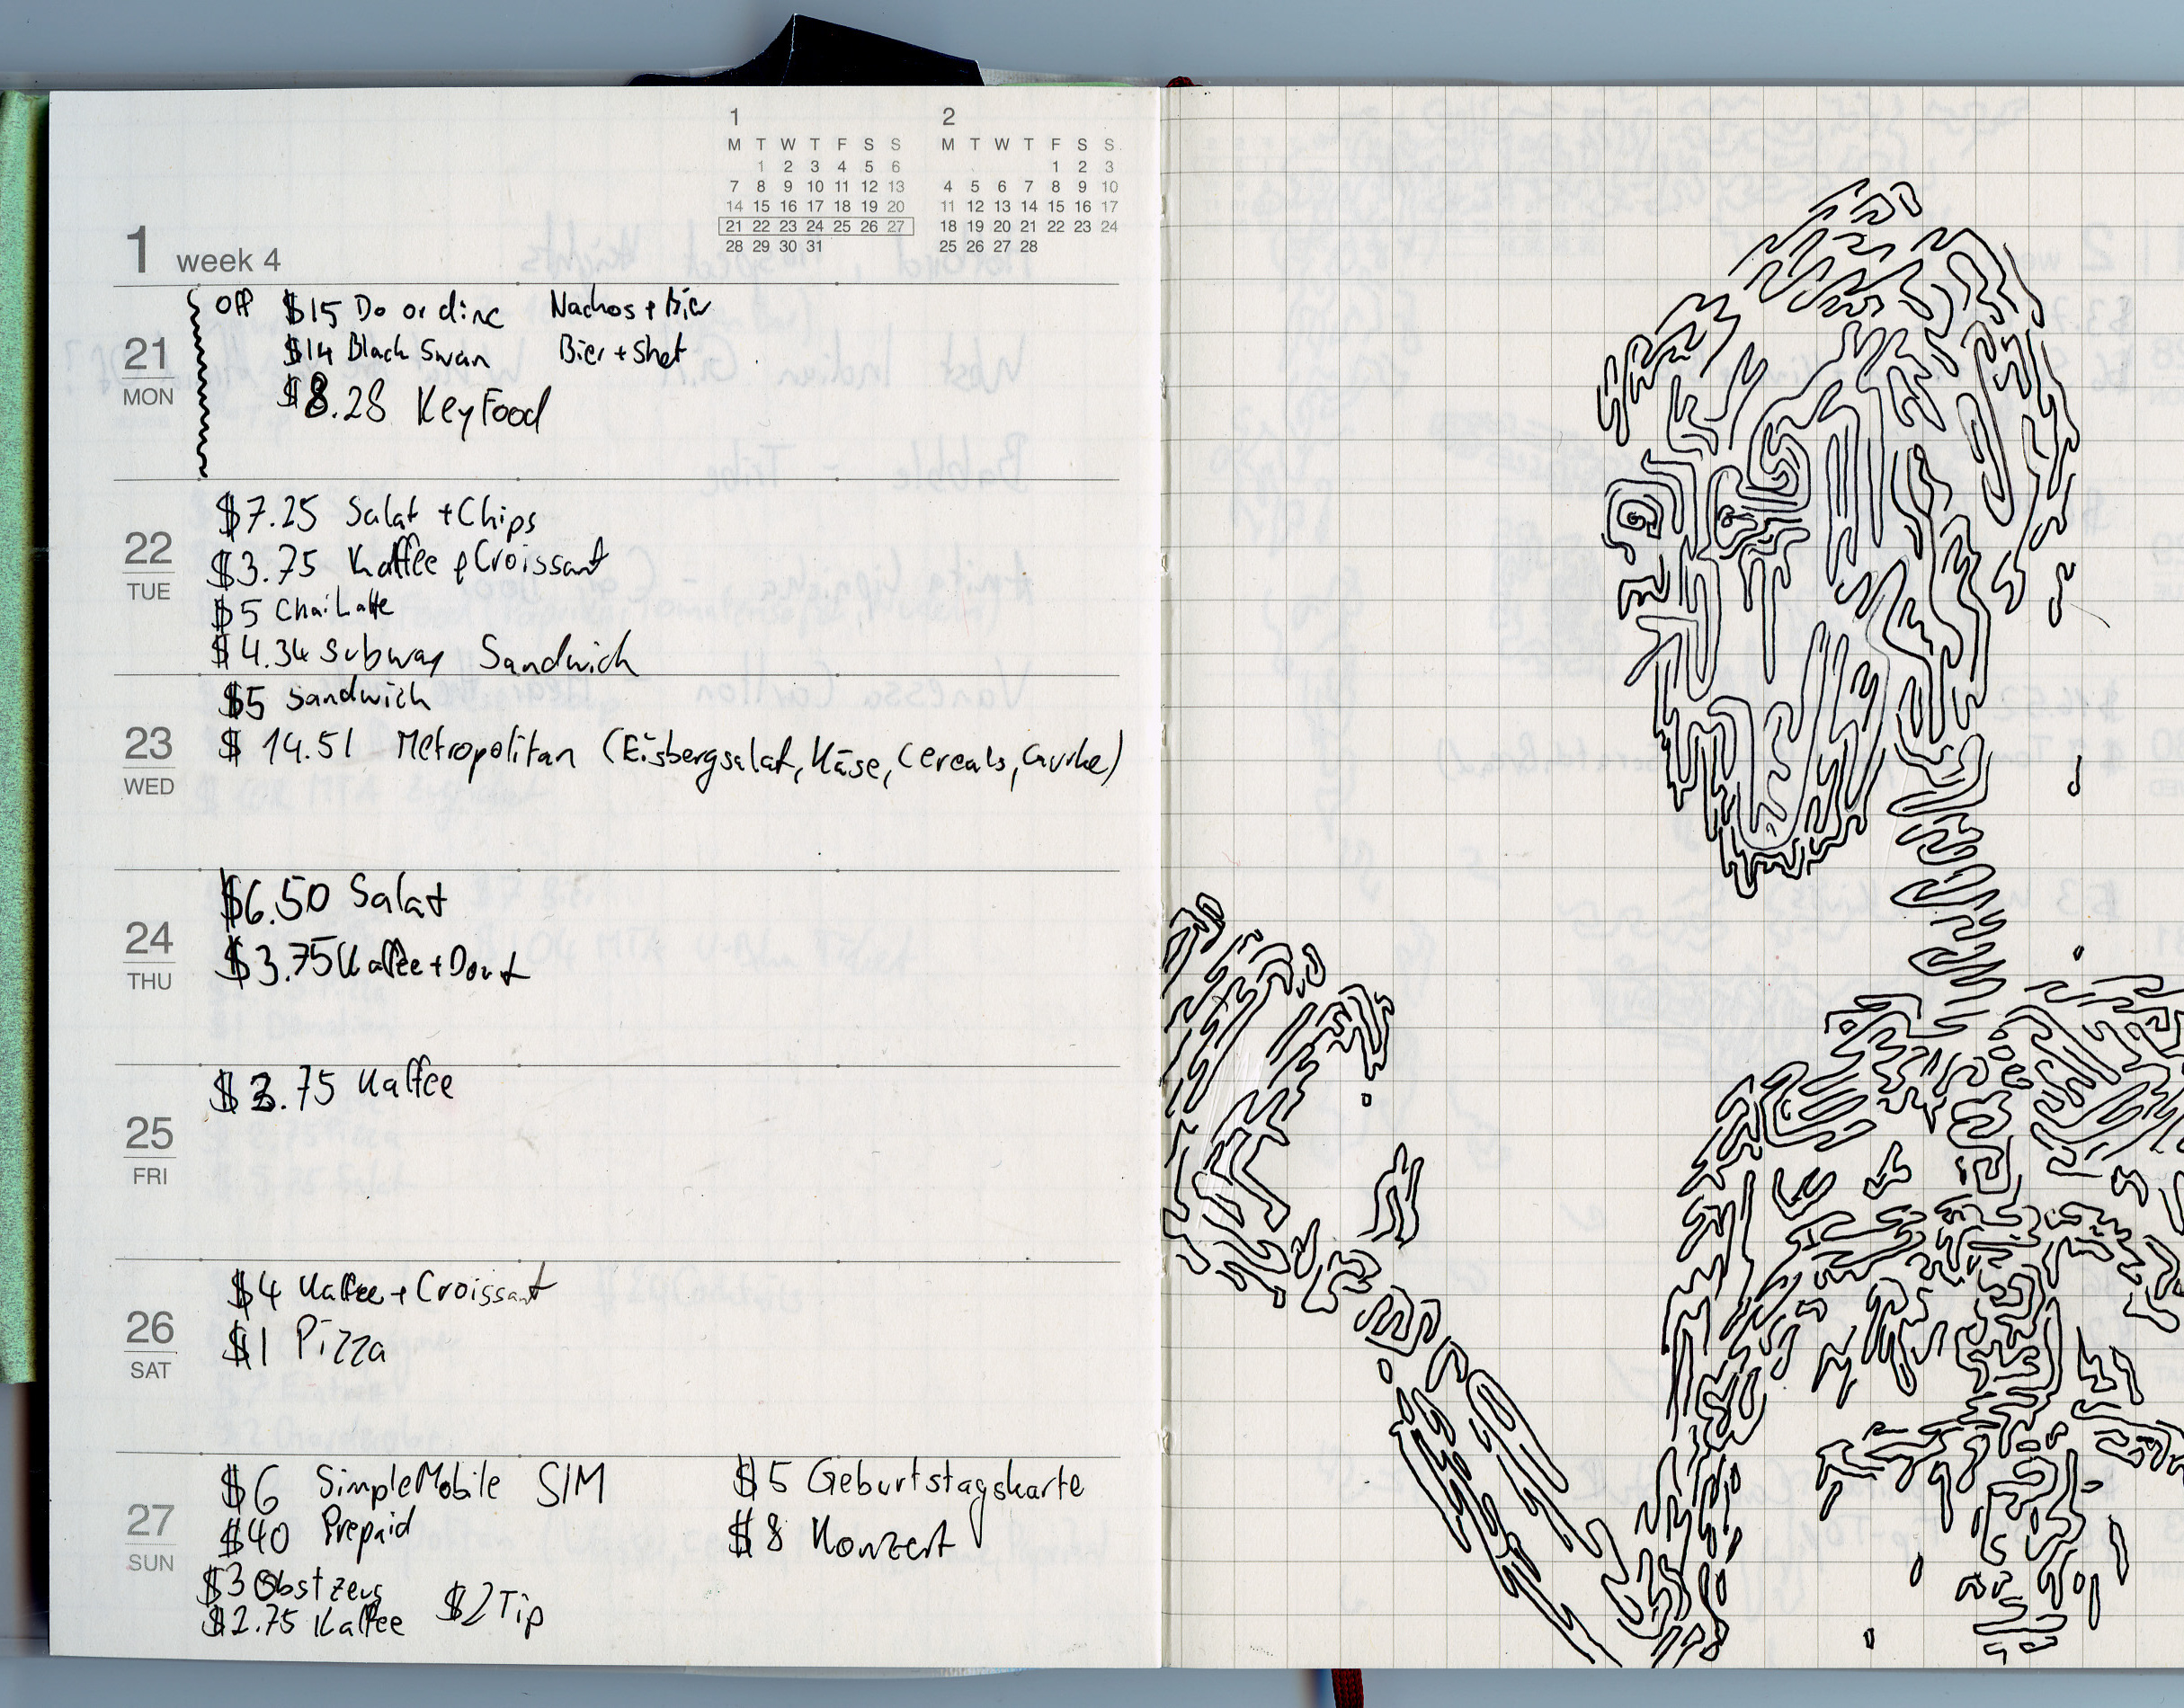 1 2
M T W T F S S M T W T F S S
1 2 3 4 5 6 1 2 3
7 8 9 10 11 12 13 4 5 6 7 8 9 10
14 15 16 17 18 19 20 11 12 13 14 15 16 17
21 22 23 24 25 26 27 18 19 20 21 22 23 24
28 29 30 31 25 26 27 28
1 week 4
21 MON
Off $15 Do or dine Nachos + Bier
$14 Black Swan Bier + Shot
$8.28 KeyFood
22 TUE
$7.25 Salat + Chips
$3.75 Kaffee + Croissant
$5 Chai Latte
$4.34 Subway Sandwich
23 WED
$5 Sandwich
$14.51 Metropolitan (Eisbergsalat, Käse, Cereals, Gurke)
24 THU
$6.50 Salat
$3.75 Kaffee + Dont
25 FRI
$3.75 Kaffee
26 SAT
$4 Kaffee + Croissant
$1 Pizza
27 SUN
$6 SimpleMobile SIM $5 Geburtstagskarte
$40 Prepaid $8 Konzert
$3 Obstzeug
$2.75 Kaffee $2 Tip